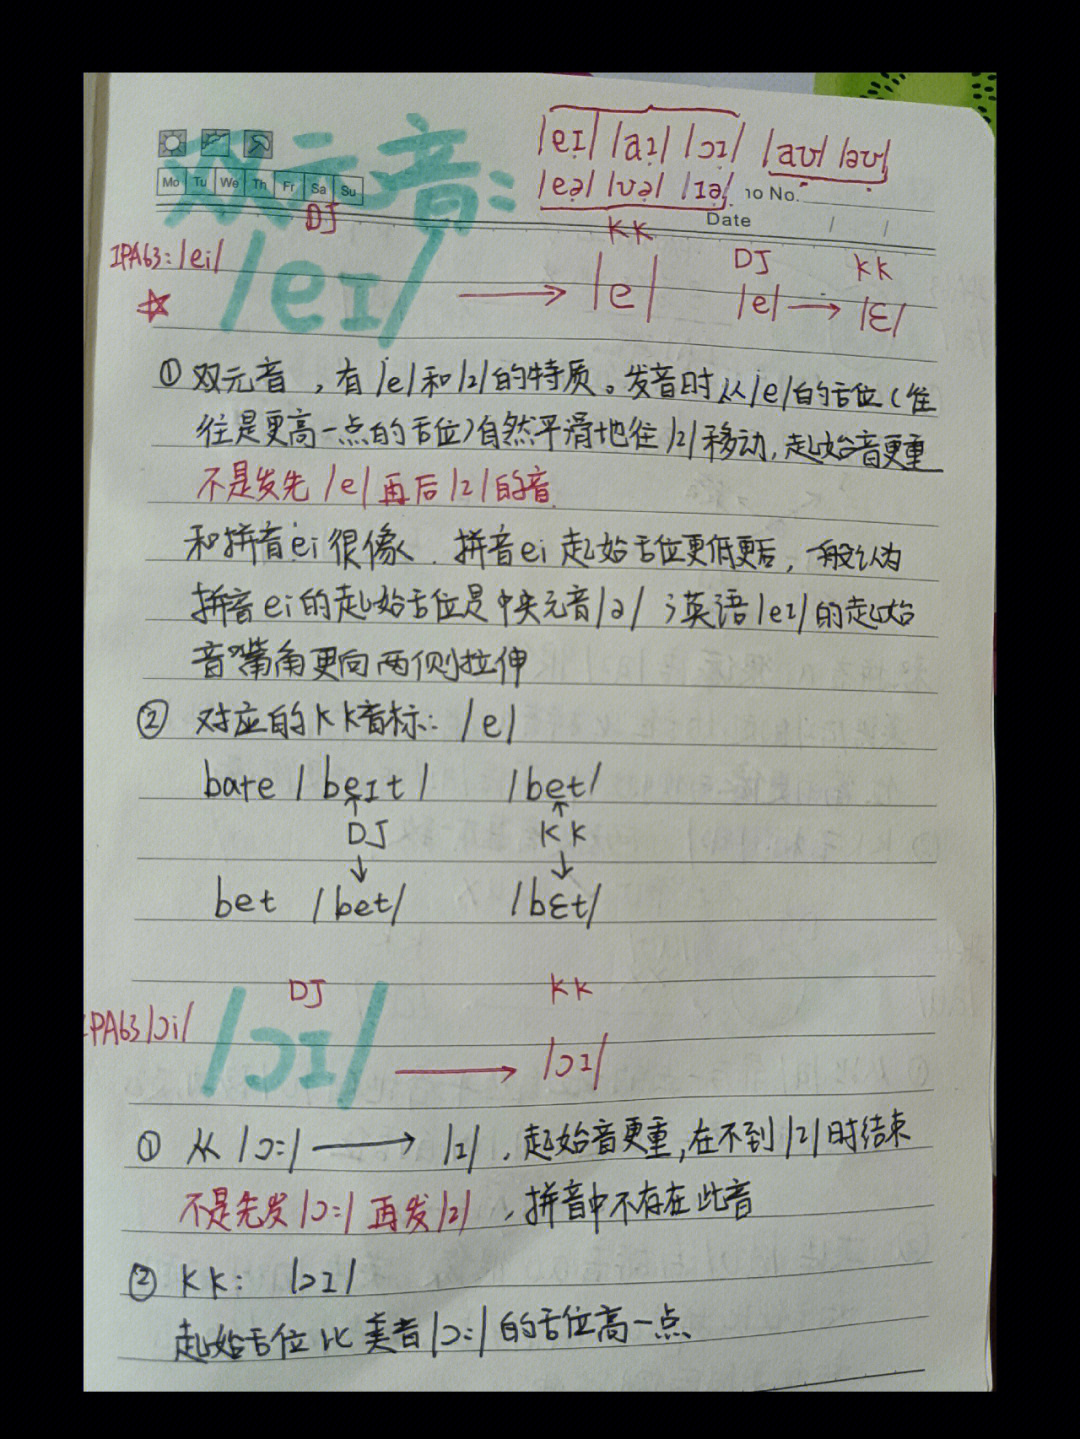 双元音:
/eɪ/ /aɪ/ /ɔɪ/ /aʊ/ /əʊ/
/eə/ /ʊə/ /ɪə/
Mo Tu We Th Fr Sa Su
No.
Date / /
DJ KK DJ KK
IPA63: /ei/ /eɪ/ → /e/ /e/ → /ɛ/
① 双元音，有/e/和/ɪ/的特质。发音时从/e/的舌位(往
往是更高一点的舌位)自然平滑地往/ɪ/移动,起始音更重
不是发先/e/再后/ɪ/的音.
和拼音ei很像. 拼音ei起始舌位更低更后，一般认为
拼音ei的起始舌位是中央元音/ə/；英语/eɪ/的起始
音嘴角更向两侧拉伸
② 对应的KK音标:/e/
bate /beɪt/ /bet/
↑ ↑
DJ KK
↓ ↓
bet /bet/ /bɛt/
DJ KK
IPA63/ɔi/ /ɔɪ/ → /ɔɪ/
① 从/ɔ:/ → /ɪ/，起始音更重,在不到/ɪ/时结束
不是先发/ɔ:/再发/ɪ/，拼音中不存在此音
② KK: /ɔɪ/
起始舌位比美音/ɔ:/的舌位高一点.